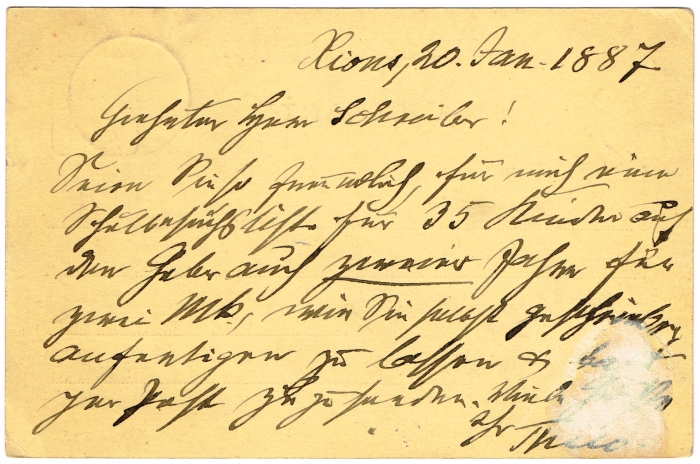 Xions, 20. Jan. 1887
Geehrter Herr Schreiber!
Seien Sie so freundlich, für mich eine
Schulbesuchsliste für 35 Kinder auf
den Gebrauch zweier Jahre für
zwei Mk., wie Sie selbst geschrieben
anfertigen zu lassen &
per Post zuzusenden. Viele
Ihr